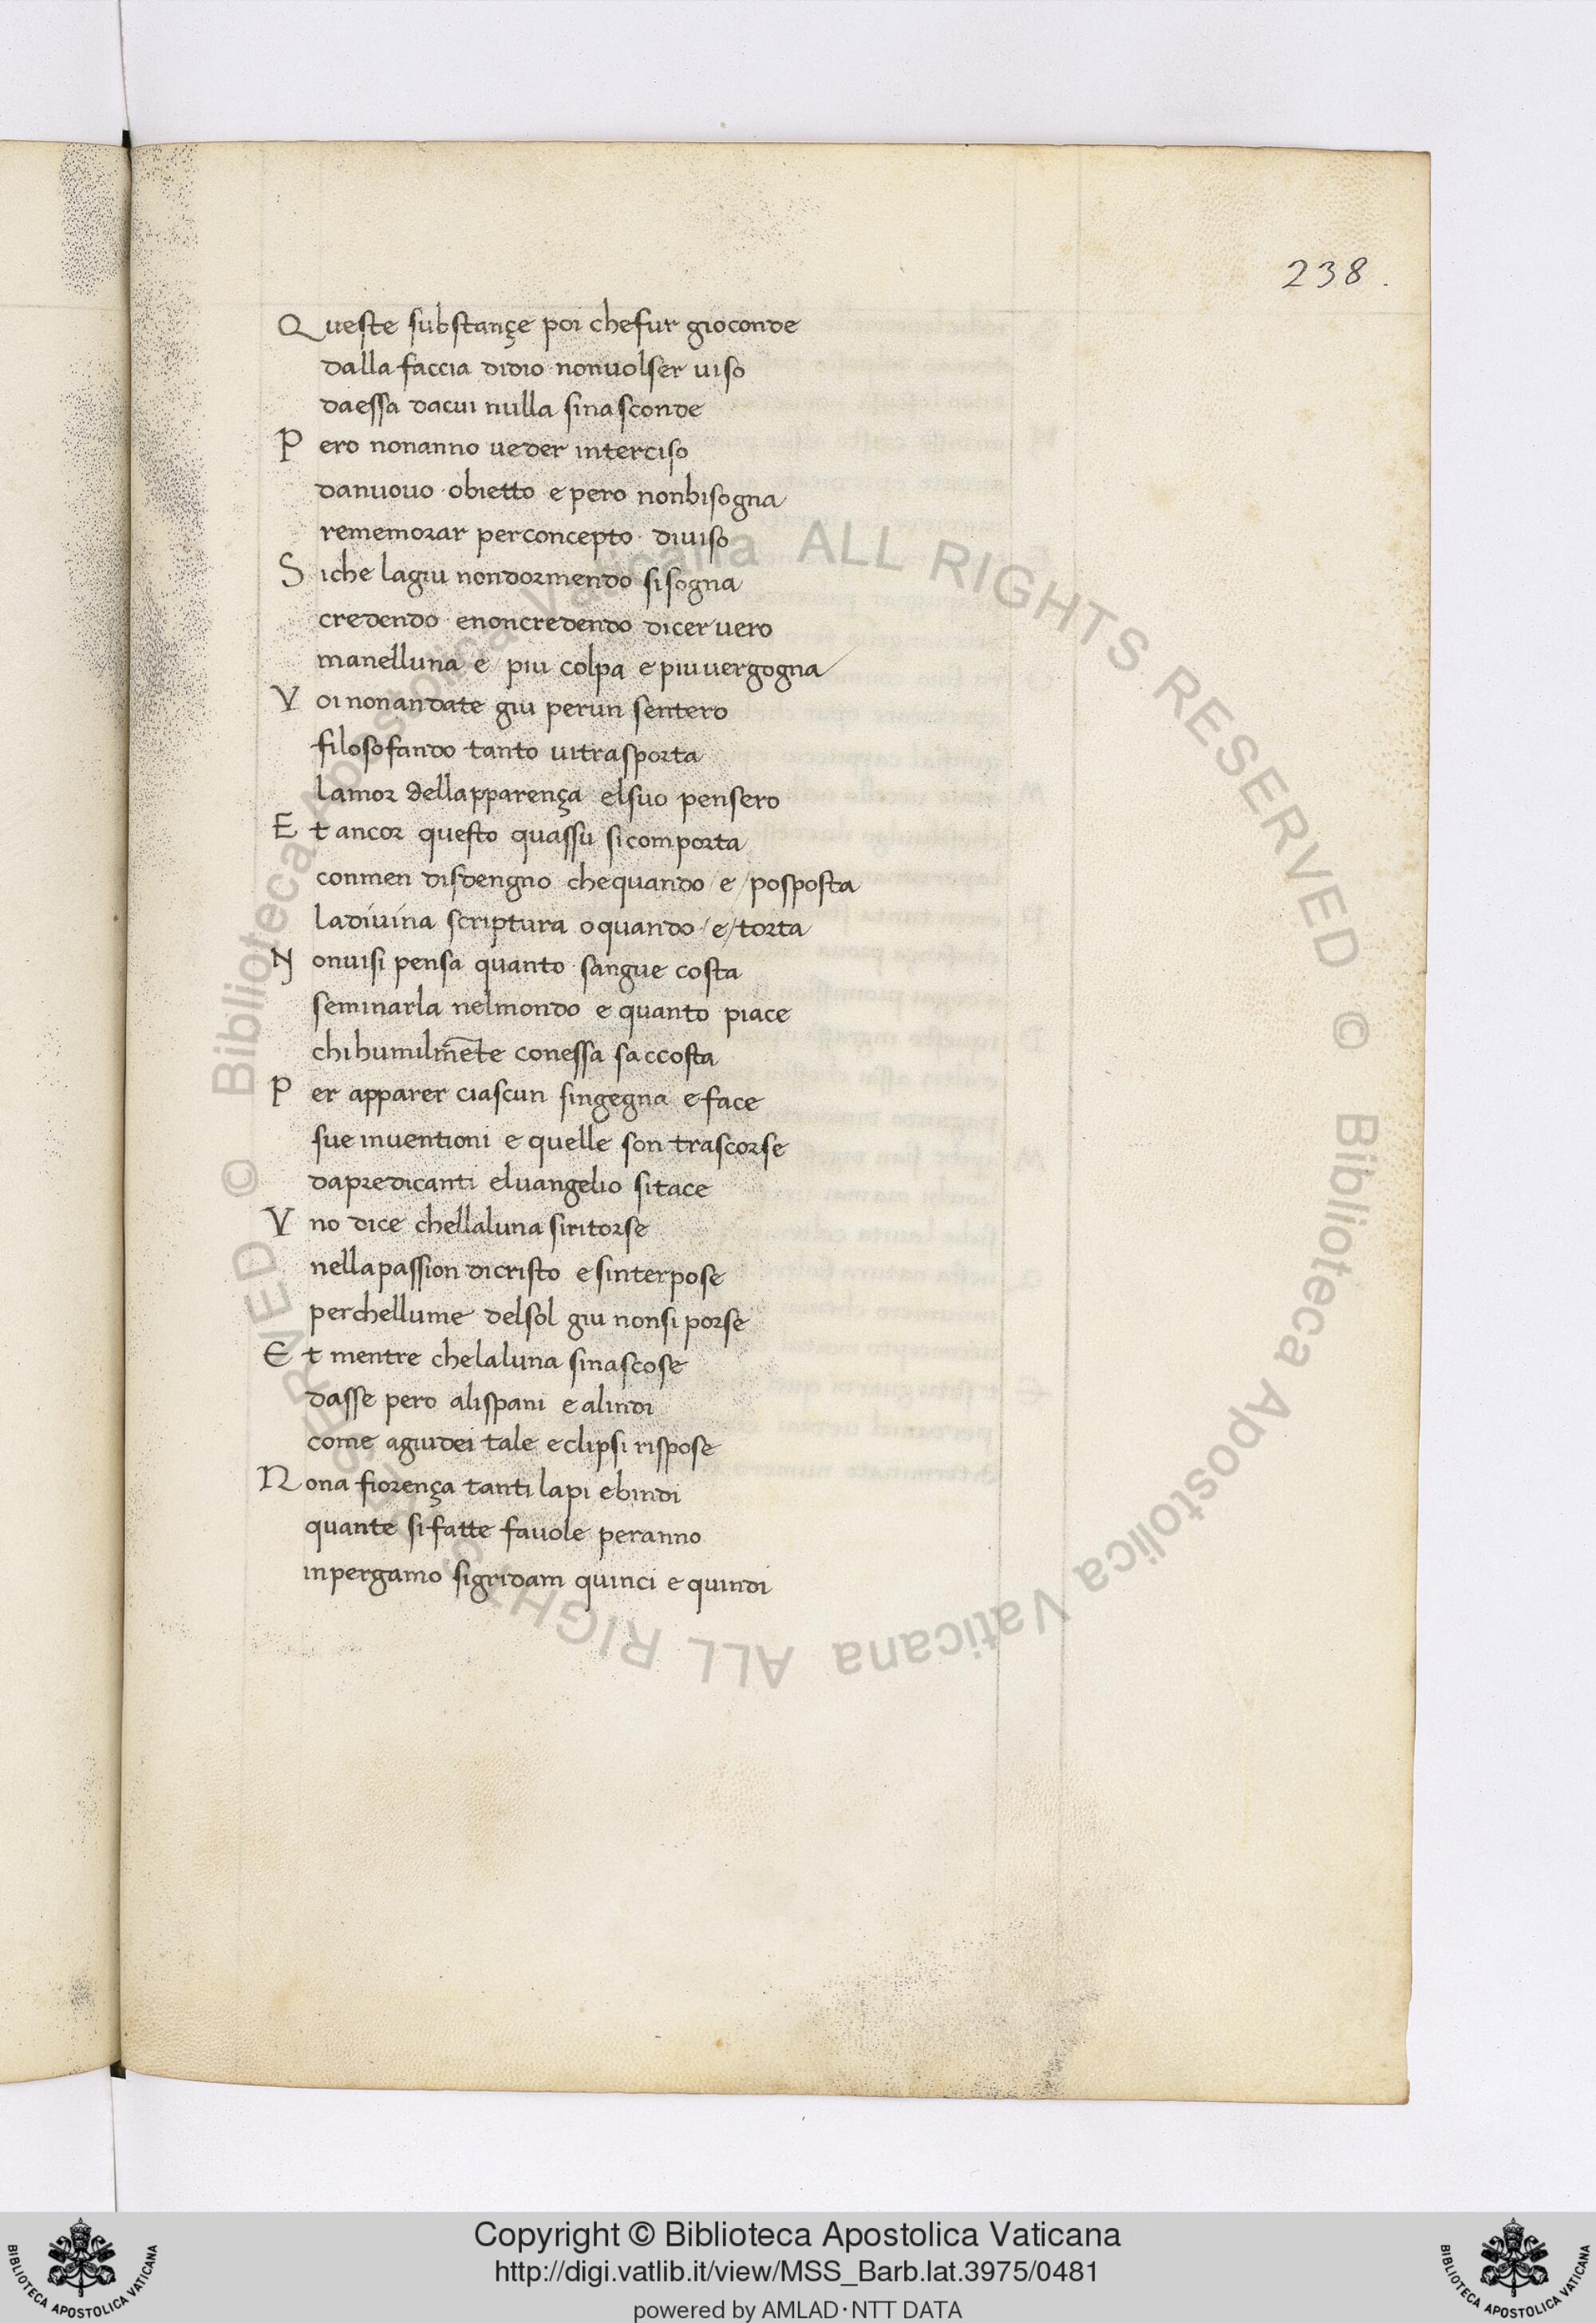 238.
Queste substançe poi chefur gioconde
dalla faccia didio nonuolser uiso
daessa dacui nulla sinasconde
Pero nonanno ueder interciso
danuouo obietto e pero nonbisogna
rememorar perconcepto diuiso
Siche lagiu nondormendo sisogna
credendo enoncredendo dicer uero
manelluna e/ piu colpa e piu uergogna
Voi nonandate giu perun sentero
filosofando tanto uitrasporta
lamor dellapparença elsuo pensero
Et ancor questo quassu sicomporta
conmen disdengno chequando /e/ posposta
ladiuina scriptura oquando /e/ torta
Nonuisi pensa quanto sangue costa
seminarla nelmondo e quanto piace
chi humilmẽte conessa saccosta
Per apparer ciascun singegna e face
sue inuentioni e quelle son trascorse
dapredicanti eluangelio sitace
Vno dice chellaluna siritorse
nellapassion dicristo e sinterpose
perchellume delsol giu nonsi porse
Et mentre chelaluna sinascose
dasse pero alispani e alindi
come agiudei tale eclipsi rispose
Nona fiorença tanti lapi ebindi
quante si fatte fauole peranno
inpergamo sigridam quinci e quindi
Biblioteca Apostolica Vaticana ALL RIGHTS RESERVED ©
Biblioteca Apostolica Vaticana ALL RIGHTS RESERVED ©
Copyright © Biblioteca Apostolica Vaticana
http://digi.vatlib.it/view/MSS_Barb.lat.3975/0481
powered by AMLAD·NTT DATA
BIBLIOTECA APOSTOLICA VATICANA
BIBLIOTECA APOSTOLICA VATICANA